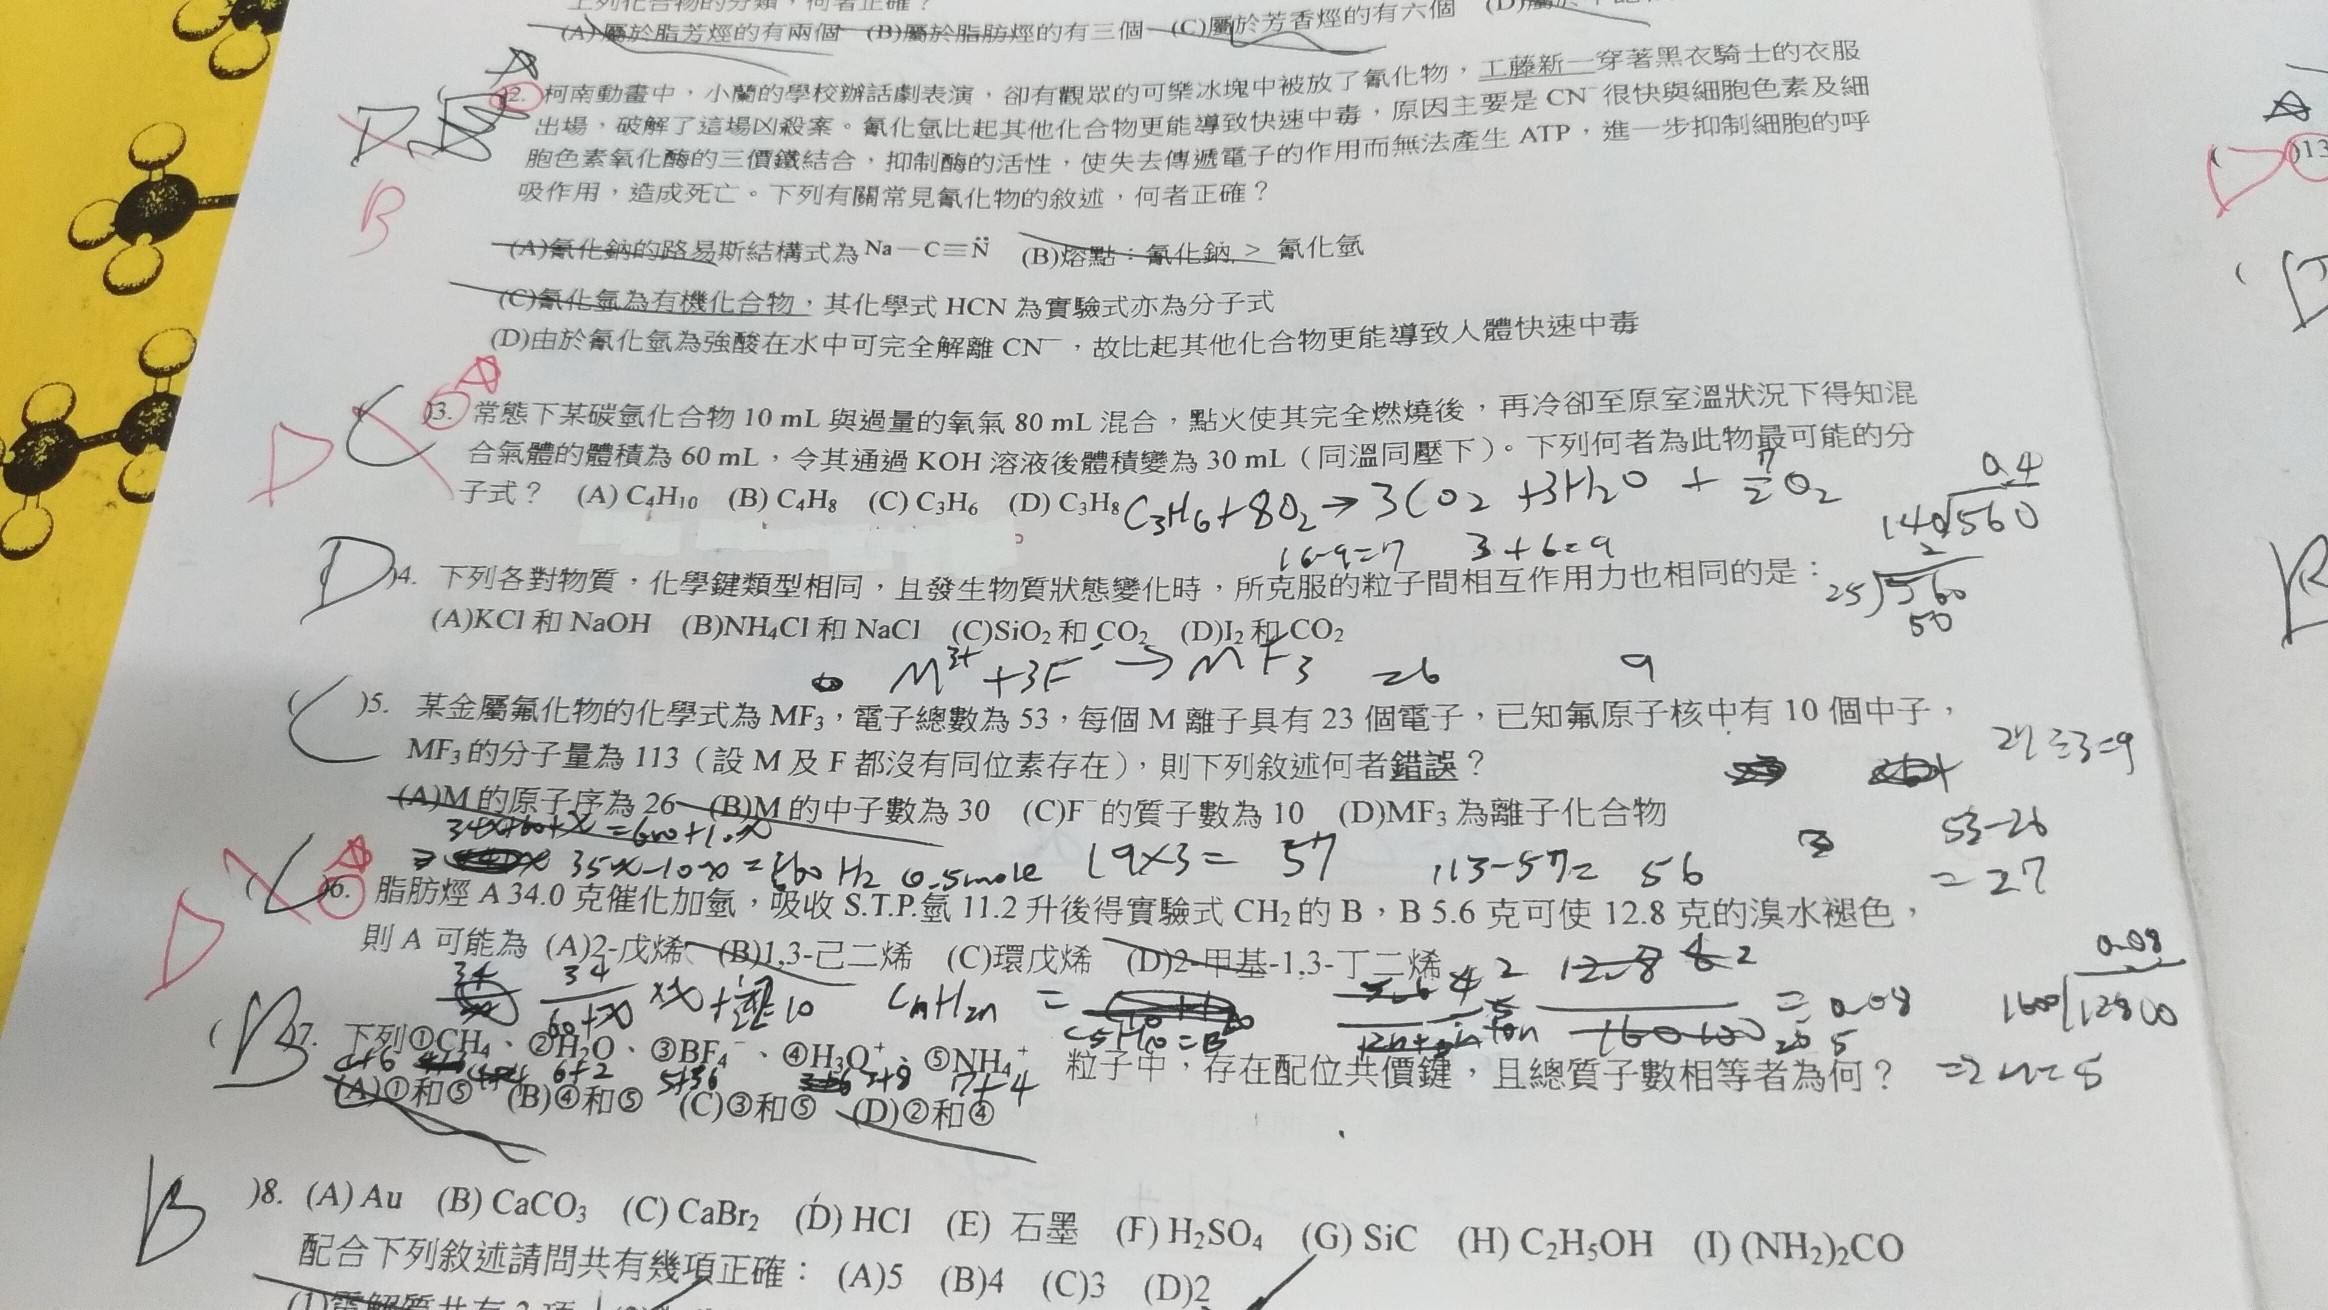 上列化合物的分類，何者正確？
(A)屬於脂芳烴的有兩個 (B)屬於脂肪烴的有三個 (C)屬於芳香烴的有六個
2. 柯南動畫中，小蘭的學校辦話劇表演，卻有觀眾的可樂冰塊中被放了氰化物，工藤新一穿著黑衣騎士的衣服
出場，破解了這場凶殺案。氰化氫比起其他化合物更能導致快速中毒，原因主要是 CN⁻ 很快與細胞色素及細
胞色素氧化酶的三價鐵結合，抑制酶的活性，使失去傳遞電子的作用而無法產生 ATP，進一步抑制細胞的呼
吸作用，造成死亡。下列有關常見氰化物的敘述，何者正確？
B
(A)氰化鈉的路易斯結構式為 Na－C≡N̈ (B)熔點：氰化鈉 > 氰化氫
(C)氰化氫為有機化合物，其化學式 HCN 為實驗式亦為分子式
(D)由於氰化氫為強酸在水中可完全解離 CN⁻，故比起其他化合物更能導致人體快速中毒
D C )3. 常態下某碳氫化合物 10 mL 與過量的氧氣 80 mL 混合，點火使其完全燃燒後，再冷卻至原室溫狀況下得知混
合氣體的體積為 60 mL，令其通過 KOH 溶液後體積變為 30 mL（同溫同壓下）。下列何者為此物最可能的分
子式？ (A) C₄H₁₀ (B) C₄H₈ (C) C₃H₆ (D) C₃H₈
C₃H₆+8O₂→3CO₂+3H₂O+7/2 O₂
0.4
140√560
16-9=7 3+6=9
D )4. 下列各對物質，化學鍵類型相同，且發生物質狀態變化時，所克服的粒子間相互作用力也相同的是：
(A)KCl 和 NaOH (B)NH₄Cl 和 NaCl (C)SiO₂ 和 CO₂ (D)I₂ 和 CO₂
2
25)560
50
M³⁺+3F⁻→MF₃ =26 9
( C )5. 某金屬氟化物的化學式為 MF₃，電子總數為 53，每個 M 離子具有 23 個電子，已知氟原子核中有 10 個中子，
MF₃的分子量為 113（設 M 及 F 都沒有同位素存在），則下列敘述何者錯誤？
27÷3=9
(A)M 的原子序為 26 (B)M 的中子數為 30 (C)F⁻的質子數為 10 (D)MF₃ 為離子化合物
53-26
=27
35x-10x=560 H₂ 0.5mole 19×3= 57 113-57= 56
D C )6. 脂肪烴 A 34.0 克催化加氫，吸收 S.T.P.氫 11.2 升後得實驗式 CH₂ 的 B，B 5.6 克可使 12.8 克的溴水褪色，
則 A 可能為 (A)2-戊烯 (B)1,3-己二烯 (C)環戊烯 (D)2-甲基-1,3-丁二烯
CnH₂n =
C₅H₁₀=B
=0.08
0.08
1600√12800
=>n=5
( B )7. 下列①CH₄、②H₂O、③BF₄⁻、④H₃O⁺、⑤NH₄⁺ 粒子中，存在配位共價鍵，且總質子數相等者為何？
6+2 5+36 3+8 7+4
(A)①和⑤ (B)④和⑤ (C)③和⑤ (D)②和④
B )8. (A) Au (B) CaCO₃ (C) CaBr₂ (D) HCl (E) 石墨 (F) H₂SO₄ (G) SiC (H) C₂H₅OH (I) (NH₂)₂CO
配合下列敘述請問共有幾項正確： (A)5 (B)4 (C)3 (D)2
)13
D
B